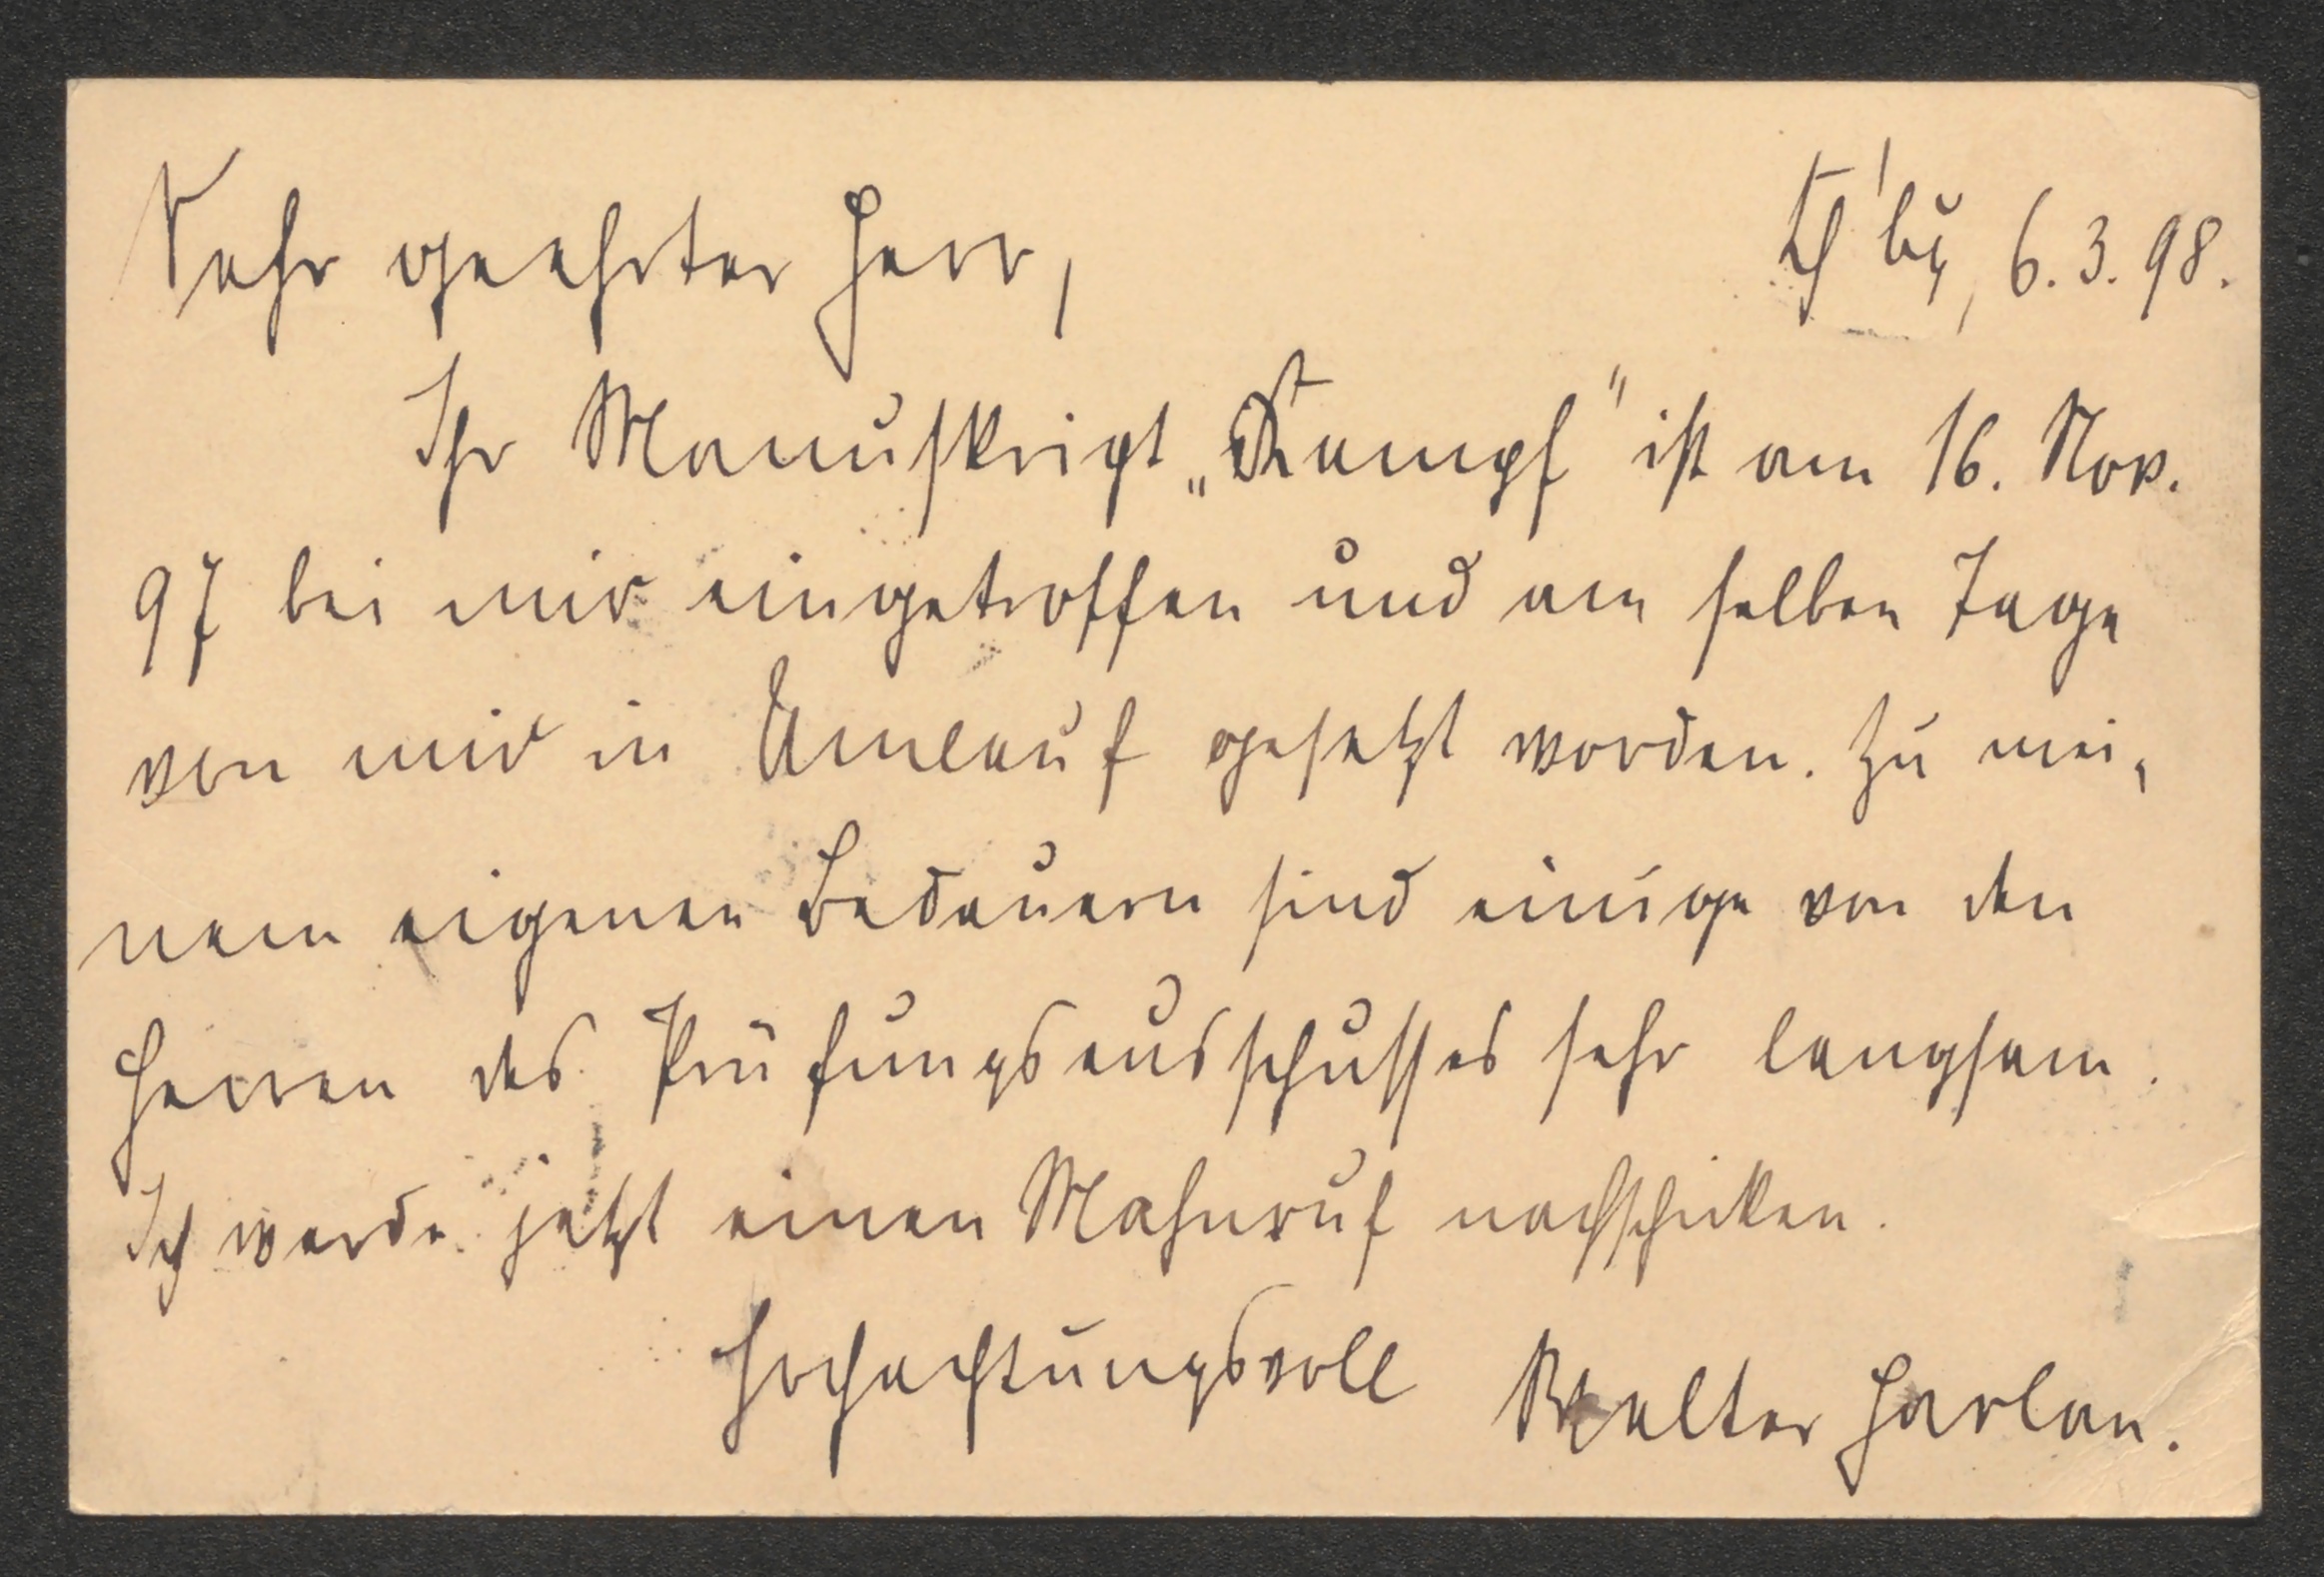 Sehr geehrter Herr,
Ch'bg, 6.3.98.
Ihr Manuskript „Kampf" ist am 16. Nov.
97 bei mir eingetroffen und am selben Tage
von mir in Umlauf gesetzt worden. Zu mei-
nem eigenen Bedauern sind einige von den
Herren des Prüfungsausschusses sehr langsam.
Ich werde jetzt einen Mahnruf nachschicken.
Hochachtungsvoll Walter Harlan.